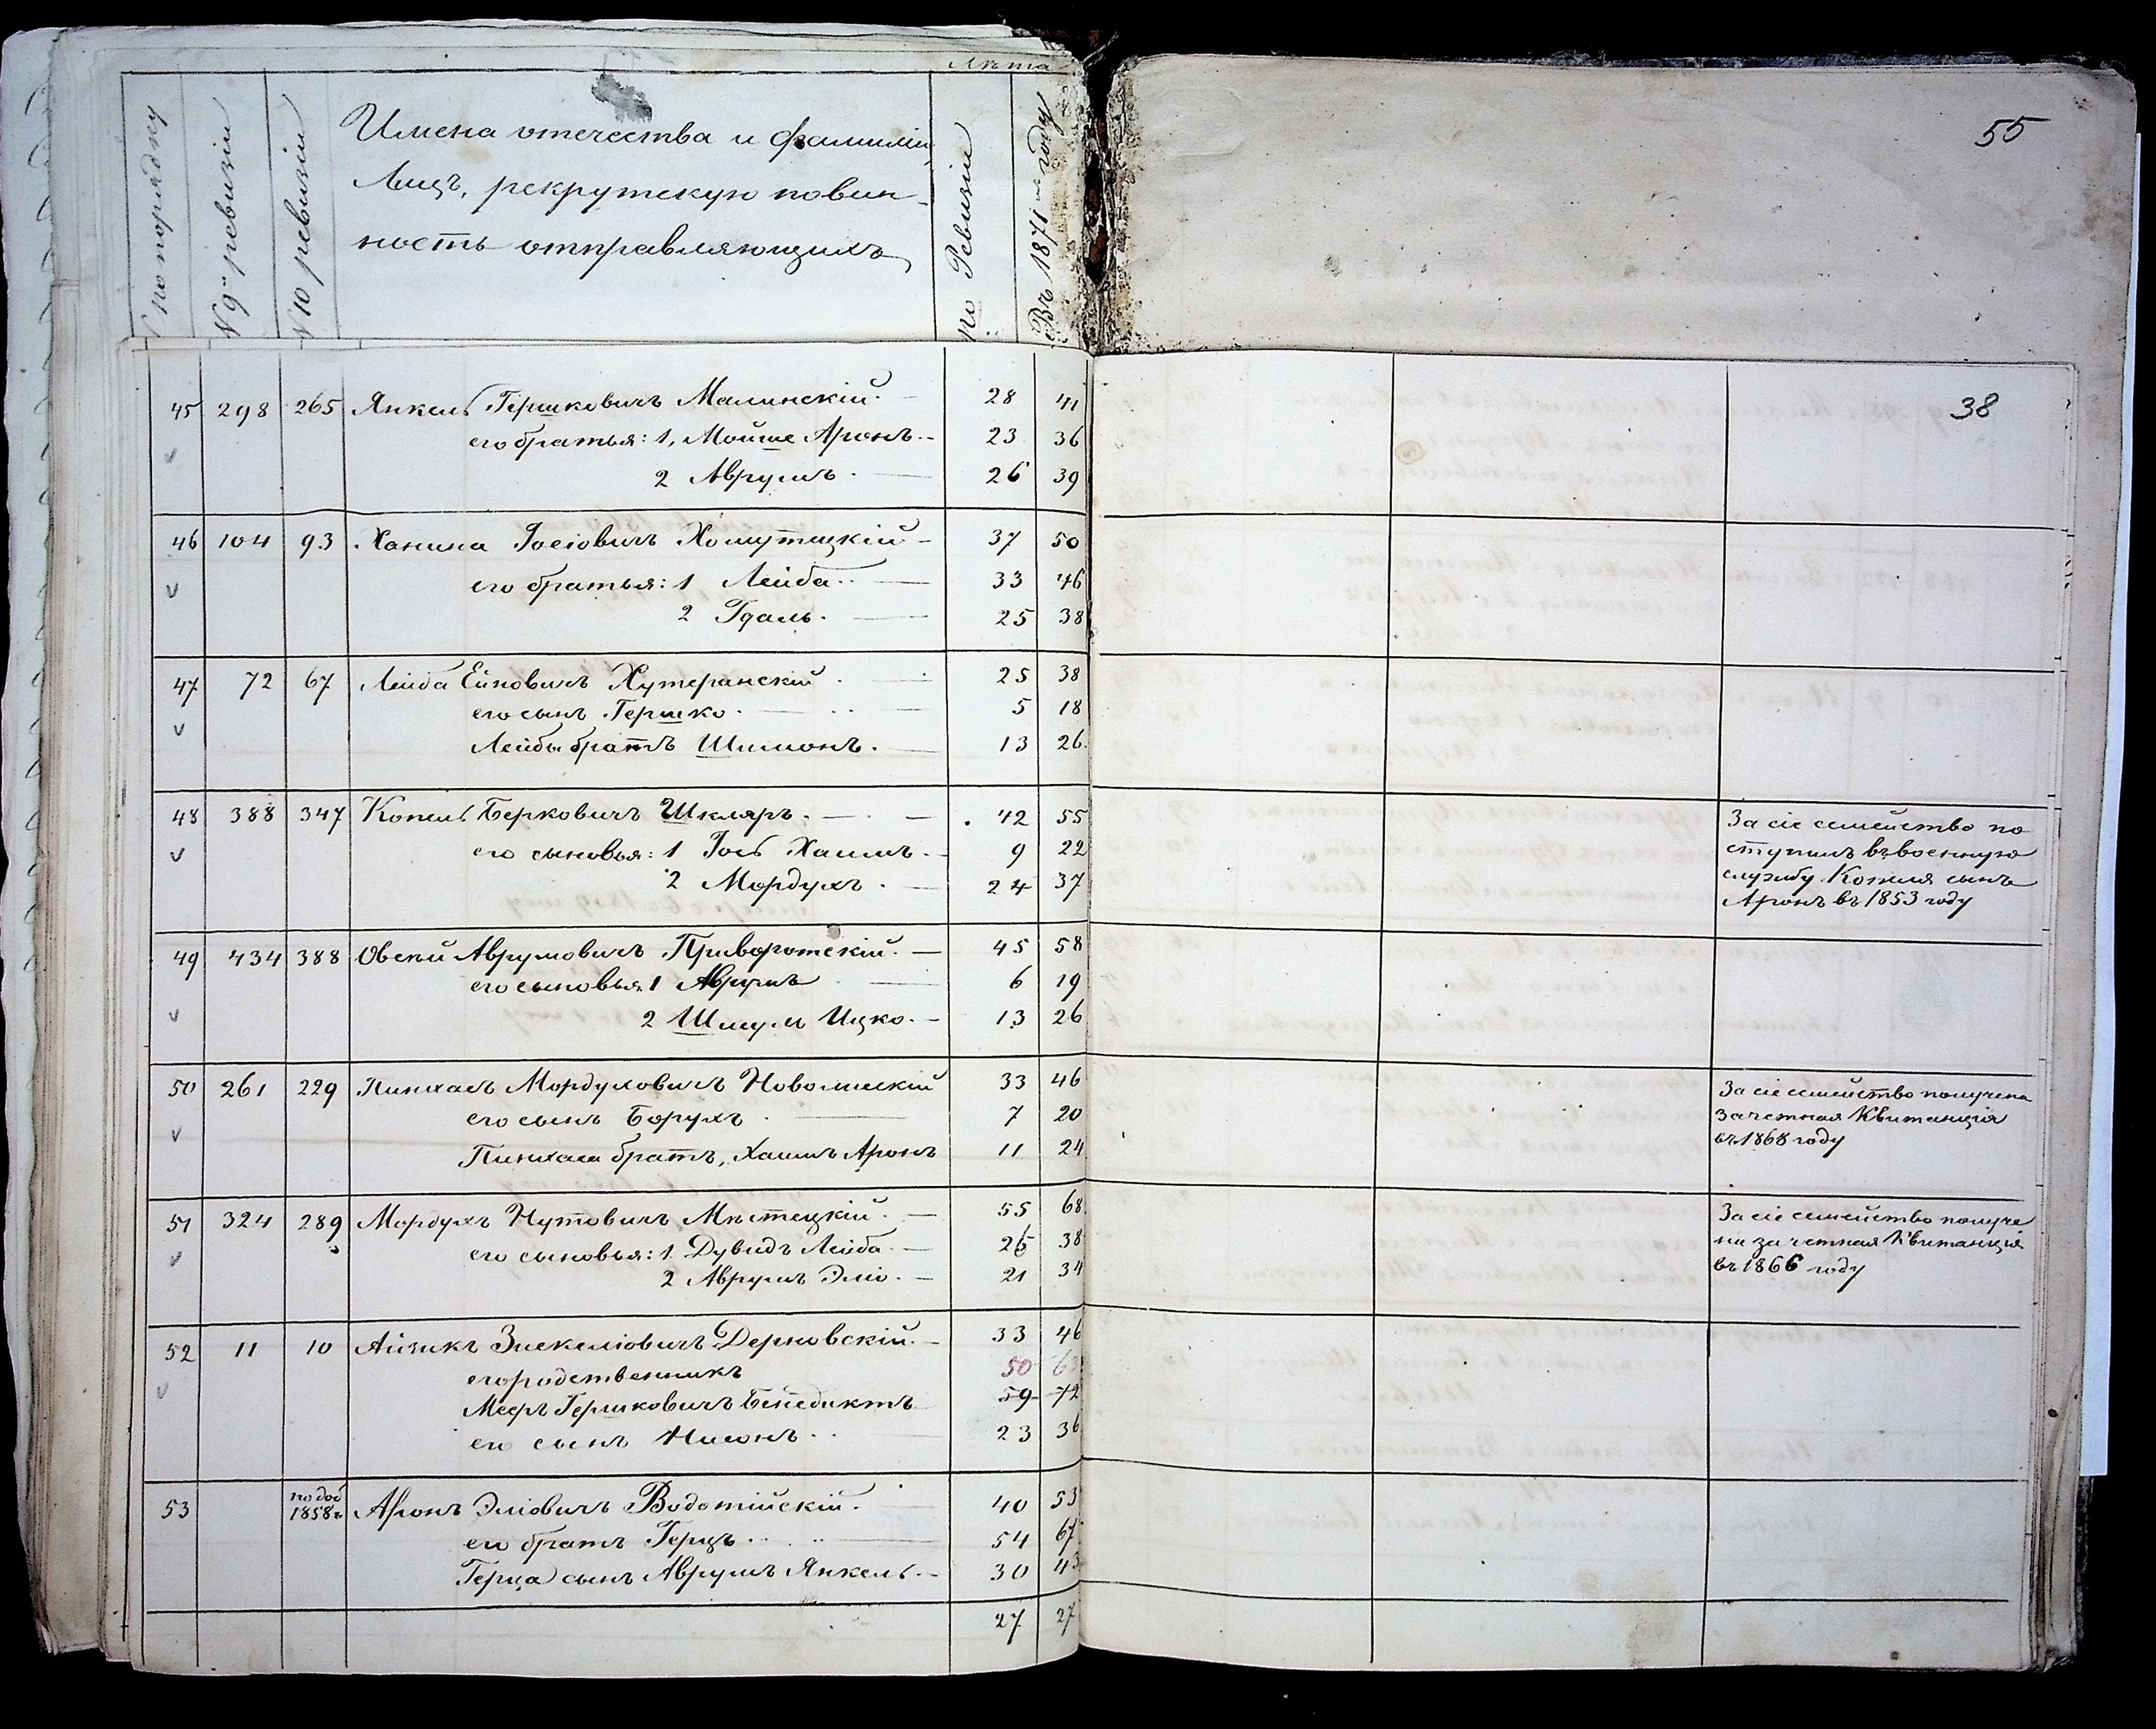 Лѣта
№ по порядку
№ 9й ревизіи
№ 10 ревизіи
Имена отечества и фамиліи
Лицъ, рекрутскую повин-
ность отправляющихъ
по Ревизіи
Въ 1871мъ году
55
38
45 298 265 Янкель Гершковичъ Малинскій. 28 41
его братья: 1, Мойше Аронъ. 23 36
2 Аврумъ. 26 39
46 104 93 Ханина Іосіовичъ Хомутецкій 37 50
его братья: 1 Лейба. 33 46
2 Гдаль. 25 38
47 72 67 Лейба Ейновичъ Хутеранскій. 25 38
его сынъ Гершко. 5 18
Лейбы братъ Шимонъ. 13 26
48 388 347 Копель Берковичъ Шкляръ. 42 55
его сыновья: 1 Іось Хаимъ. 9 22
2 Мордухъ. 24 37
За сіе семейство по
ступилъ въ военную
службу Копеля сынъ
Аронъ въ 1853 году
49 434 388 Овсѣй Аврумовичъ Приворотскій. 45 58
его сыновья 1 Аврумъ 6 19
2 Шмуль Ицко. 13 26
50 261 229 Пинхасъ Мордуховичъ 33 46
его сынъ Борухъ. 7 20
Пинхаса братъ, Хаимъ Аронъ 11 24
За сіе семейство получена
зачетная Квитанція
въ 1868 году
51 324 289 Мордухъ Нутовичъ Мѣстецкій. 55 68
его сыновья: 1 Дувидъ Лейба. 25 38
2 Аврумъ Эліо. 21 34
За сіе семейство получе
на зачетная Квитанція
въ 1866 году
52 11 10 Айзикъ 33 46
его родственникъ 50
Мееръ Гершковичъ Бенедиктъ 59 72
его сынъ Нисонъ. 23 36
53 по доб 1858 г. Аронъ Эліовичъ 40 53
его братъ Герцъ. 54 67
Герца сынъ Аврумъ Янкель. 30 43
27 27